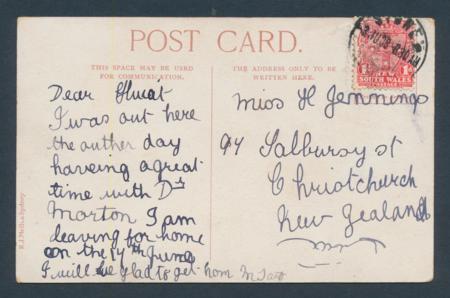 POST CARD.
THIS SPACE MAY BE USED
FOR COMMUNICATION.
THE ADDRESS ONLY TO BE
WRITTEN HERE.
Dear
I was out here
the outher day
haveing a great
time with Dr
Morton I am
leaving for home
on the 14th June
I will be glad to get hom
Miss H Jennings
94 Salbursy st
Christchurch
New Zealand
NEW
SOUTH WALES
POSTAGE